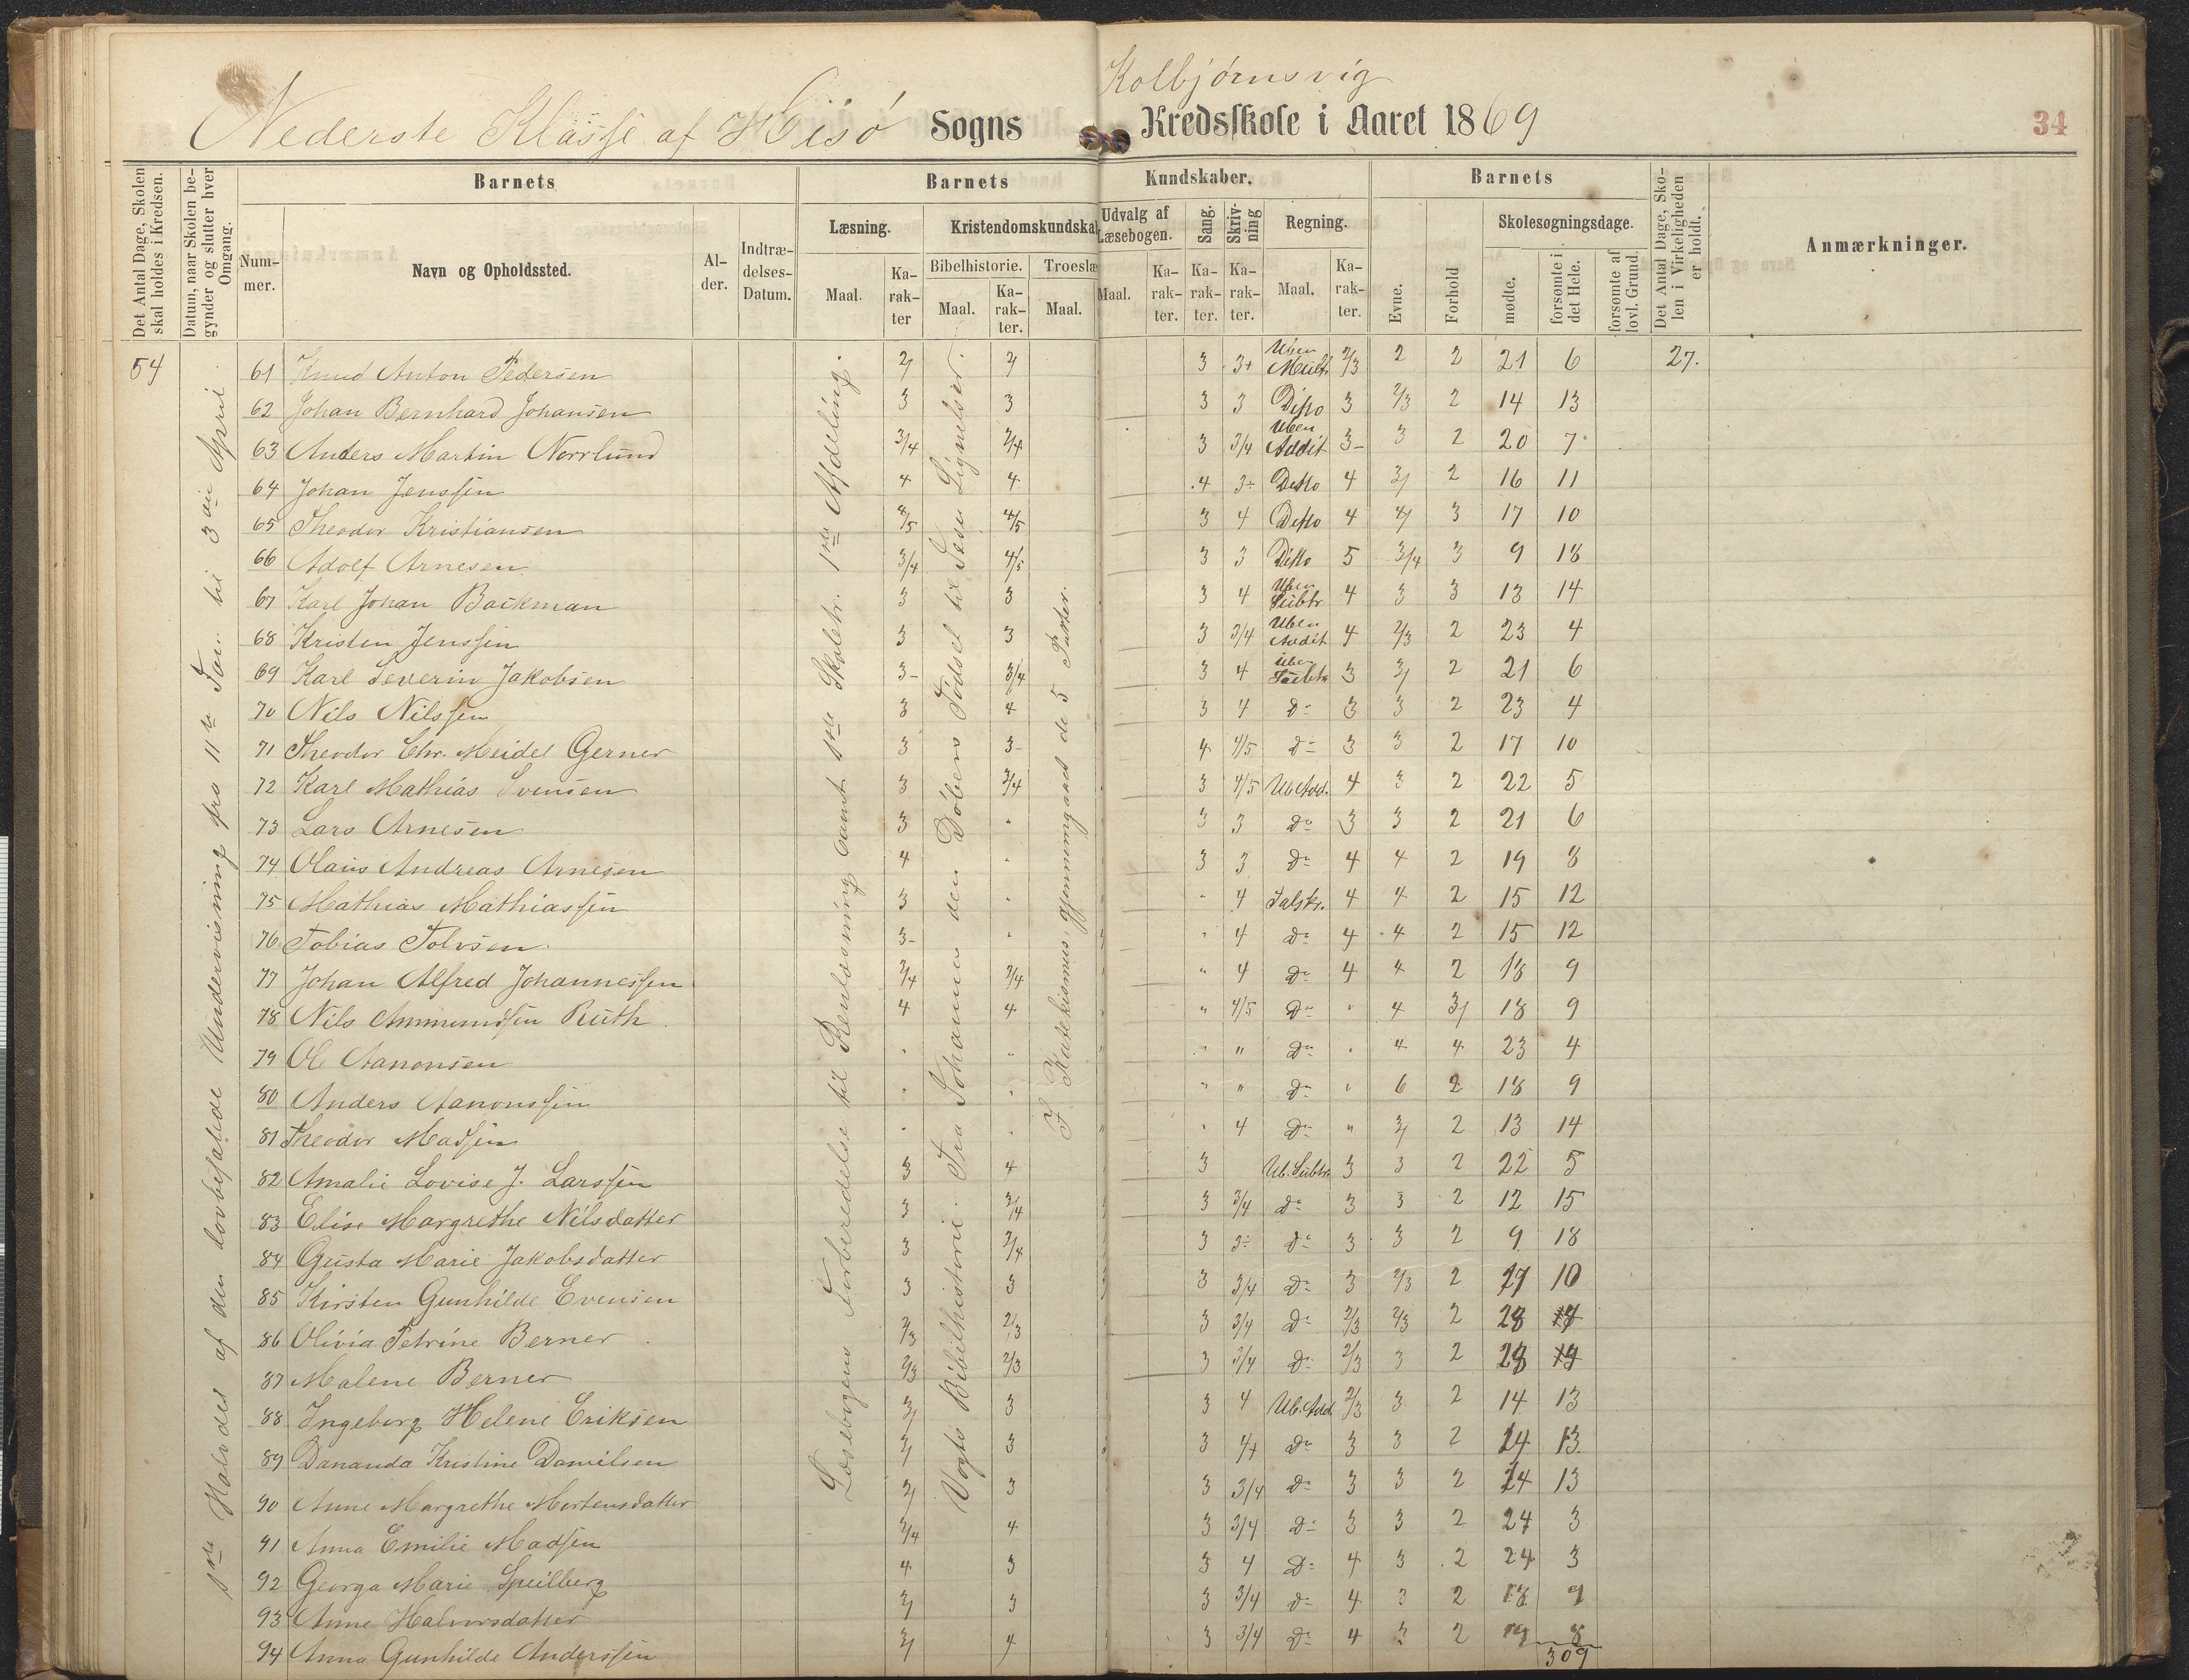 Kolbjørnsvig
Nederste Klasse af Hisø Sogns Kredsskole i Aaret 1869
34
Det Antal Dage, Skolen skal holdes i Kredsen.
Datum, naar Skolen begynder og slutter hver Omgang.
Barnets
Barnets
Kundskaber.
Barnets
Det Antal Dage, Skolen i Virkeligheden er holdt.
Anmærkninger.
Nummer.
Navn og Opholdssted.
Alder.
Indtrædelses-Datum.
Læsning.
Kristendomskundskab
Udvalg af Læsebogen.
Sang.
Skrivning
Regning.
Evne.
Forhold
Skolesøgningsdage.
Bibelhistorie.
Troeslæ
Maal.
Karakter
Maal.
Karakter.
Maal.
Maal.
Karakter.
Karakter.
Karakter.
Maal.
Karakter.
mødte.
forsømte i det Hele.
forsømte af lovl. Grund.
54
1ste Halvdel af den lovbefalede Undervisning fra 11te Jan. til 3die April.
Læsebogens Forberedelse til Renlæsning samt 1ste Skoletr. 1ste Afdeling.
Vogts Bibelhistorie. Fra Johannes den Døbers Fødsel til Jesu Lignelser.
I Katekismus gjennemgaaet de 5 Parter.
61 Knud Anton Pedersen 3 3+ Uben Mult. 2/3 2 2 21 6 27.
62 Johan Bernhard Johansen 3 3 3 3 Ditto 3 2/3 2 14 13
63 Anders Martin Norrlund 3/4 3/4 3 3/4 Uben Addit 3- 3 2 20 7
64 Johan Jenssen 4 4 4 3÷ Ditto 4 2 16 11
65 Theodor Kristiansen 4/5 4/5 3 4 Ditto 4 3 17 10
66 Adolf Arnesen 3/4 4/5 3 3 Ditto 5 3/4 3 9 18
67 Karl Johan Backman 3 3 3 4 Uben Subtr 4 3 3 13 14
68 Kristen Jenssen 3 3 3 3/4 Uben Addit 4 2/3 2 23 4
69 Karl Severin Jakobsen 3- 3/4 3 4 Uben Subtr 3 2 21 6
70 Nils Nilssen 3 4 3 4 do 3 3 2 23 4
71 Theodor Chr. Meidel Gerner 3 3- 4 4/5 do 3 3 2 17 10
72 Karl Mathias Svensen 3 3/4 3 4/5 Ub Add. 4 3 2 22 5
73 Lars Arnesen 3 " 3 3 do 3 3 2 21 6
74 Olaus Andreas Arnesen 4 " 3 3 do 4 4 2 19 8
75 Mathias Mathiassen 3 " " 4 Talskr. 4 4 2 15 12
76 Tobias Tolvsen 3- " " 4 do 4 4 2 15 12
77 Johan Alfred Johannessen 3/4 3/4 " 4 do 4 4 2 18 9
78 Nils Ammundsen Ruth 4 4 " 4/5 do " 4 18 9
79 Ole Aanonsen " " " " do " 4 4 23 4
80 Anders Aanonssen " " " " do " 6 2 18 9
81 Theodor Madsen " " " 4 do " 2 13 14
82 Amalie Lovise J. Larssen 3 4 3 Ub. Subtr. 3 3 2 22 5
83 Elise Margrethe Nilsdatter 3 3/4 3 3/4 do 3 3 2 12 15
84 Gusta Marie Jakobsdatter 3 3/4 3 3÷ do 3 3 2 9 18
85 Kirsten Gunhilde Evensen 3 3 3 3/4 do 3 2/3 2 17 10
86 Olivia Petrine Berner 2/3 2/3 3 3/4 do 2/3 2/3 2
87 Malene Berner 2/3 2/3 3 3/4 do 2/3 3 2
88 Ingeborg Helene Eriksen 3 3 4 Ub. Add. 2/3 3 2 14 13
89 Dananda Kristine Danielsen 3 3 4+ do 3 3 2 14 13
90 Anne Margrethe Mortensdatter 3 3 3/4 do 3 3 2 14 13
91 Anna Emilie Madsen 3/4 4 3 3/4 do 3 3 2 24 3
92 Georga Marie Speilberg 4 3 3 4 do 4 3 2 24 3
93 Anne Halvorsdatter 3 3 3/4 do 4 3 2 18 9
94 Anna Gunhilde Anderssen 4 3 3/4 do 4 3 2 19 8
309